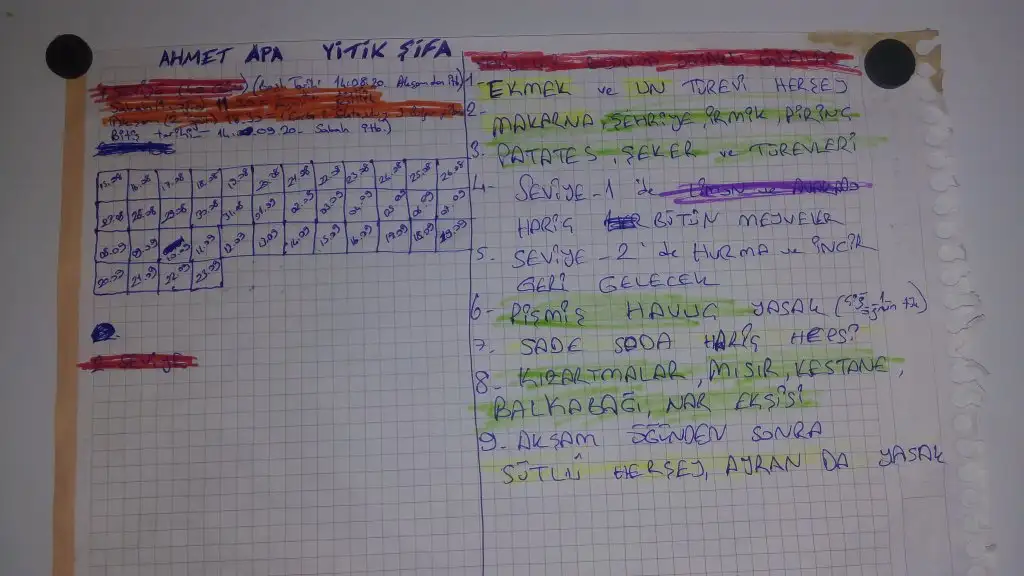 AHMET APA YİTİK ŞİFA
(Başl. Tarihi 14.08.20. Akşamdan itb.)
Bitiş tarihi - 14. .09.20 - Sabah itb.)
15.08 16.08 17.08 18.08 19.08 20.08 21.08 22.08 23.08 24.08 25.08 26.08
27.08 28.08 29.08 30.08 31.08 01.09 02.09 03.09 04.09 05.09
08.09 09.09 10.09 11.09 12.09 13.09 14.09 15.09 16.09 17.09 18.09 19.09
20.09 21.09 22.09 23.09
1. EKMEK ve UN TÜREVİ HERŞEY
2- MAKARNA, ŞEHRİYE, İRMİK, PİRİNÇ
3. PATATES, ŞEKER ve TÜREVLERİ
4- SEVİYE-1 'de
HARİÇ BÜTÜN MEYVELER
5. SEVİYE-2 'de HURMA ve İNCİR
GERİ GELECEK
6- PİŞMİŞ HAVUÇ YASAK
7. SADE SODA HARİÇ HEPSİ
8- KIZARTMALAR, MISIR, KESTANE,
BALKABAĞI, NAR EKŞİSİ
9- AKŞAM ÖĞÜNDEN SONRA
SÜTLÜ HERŞEY, AYRAN DA YASAK